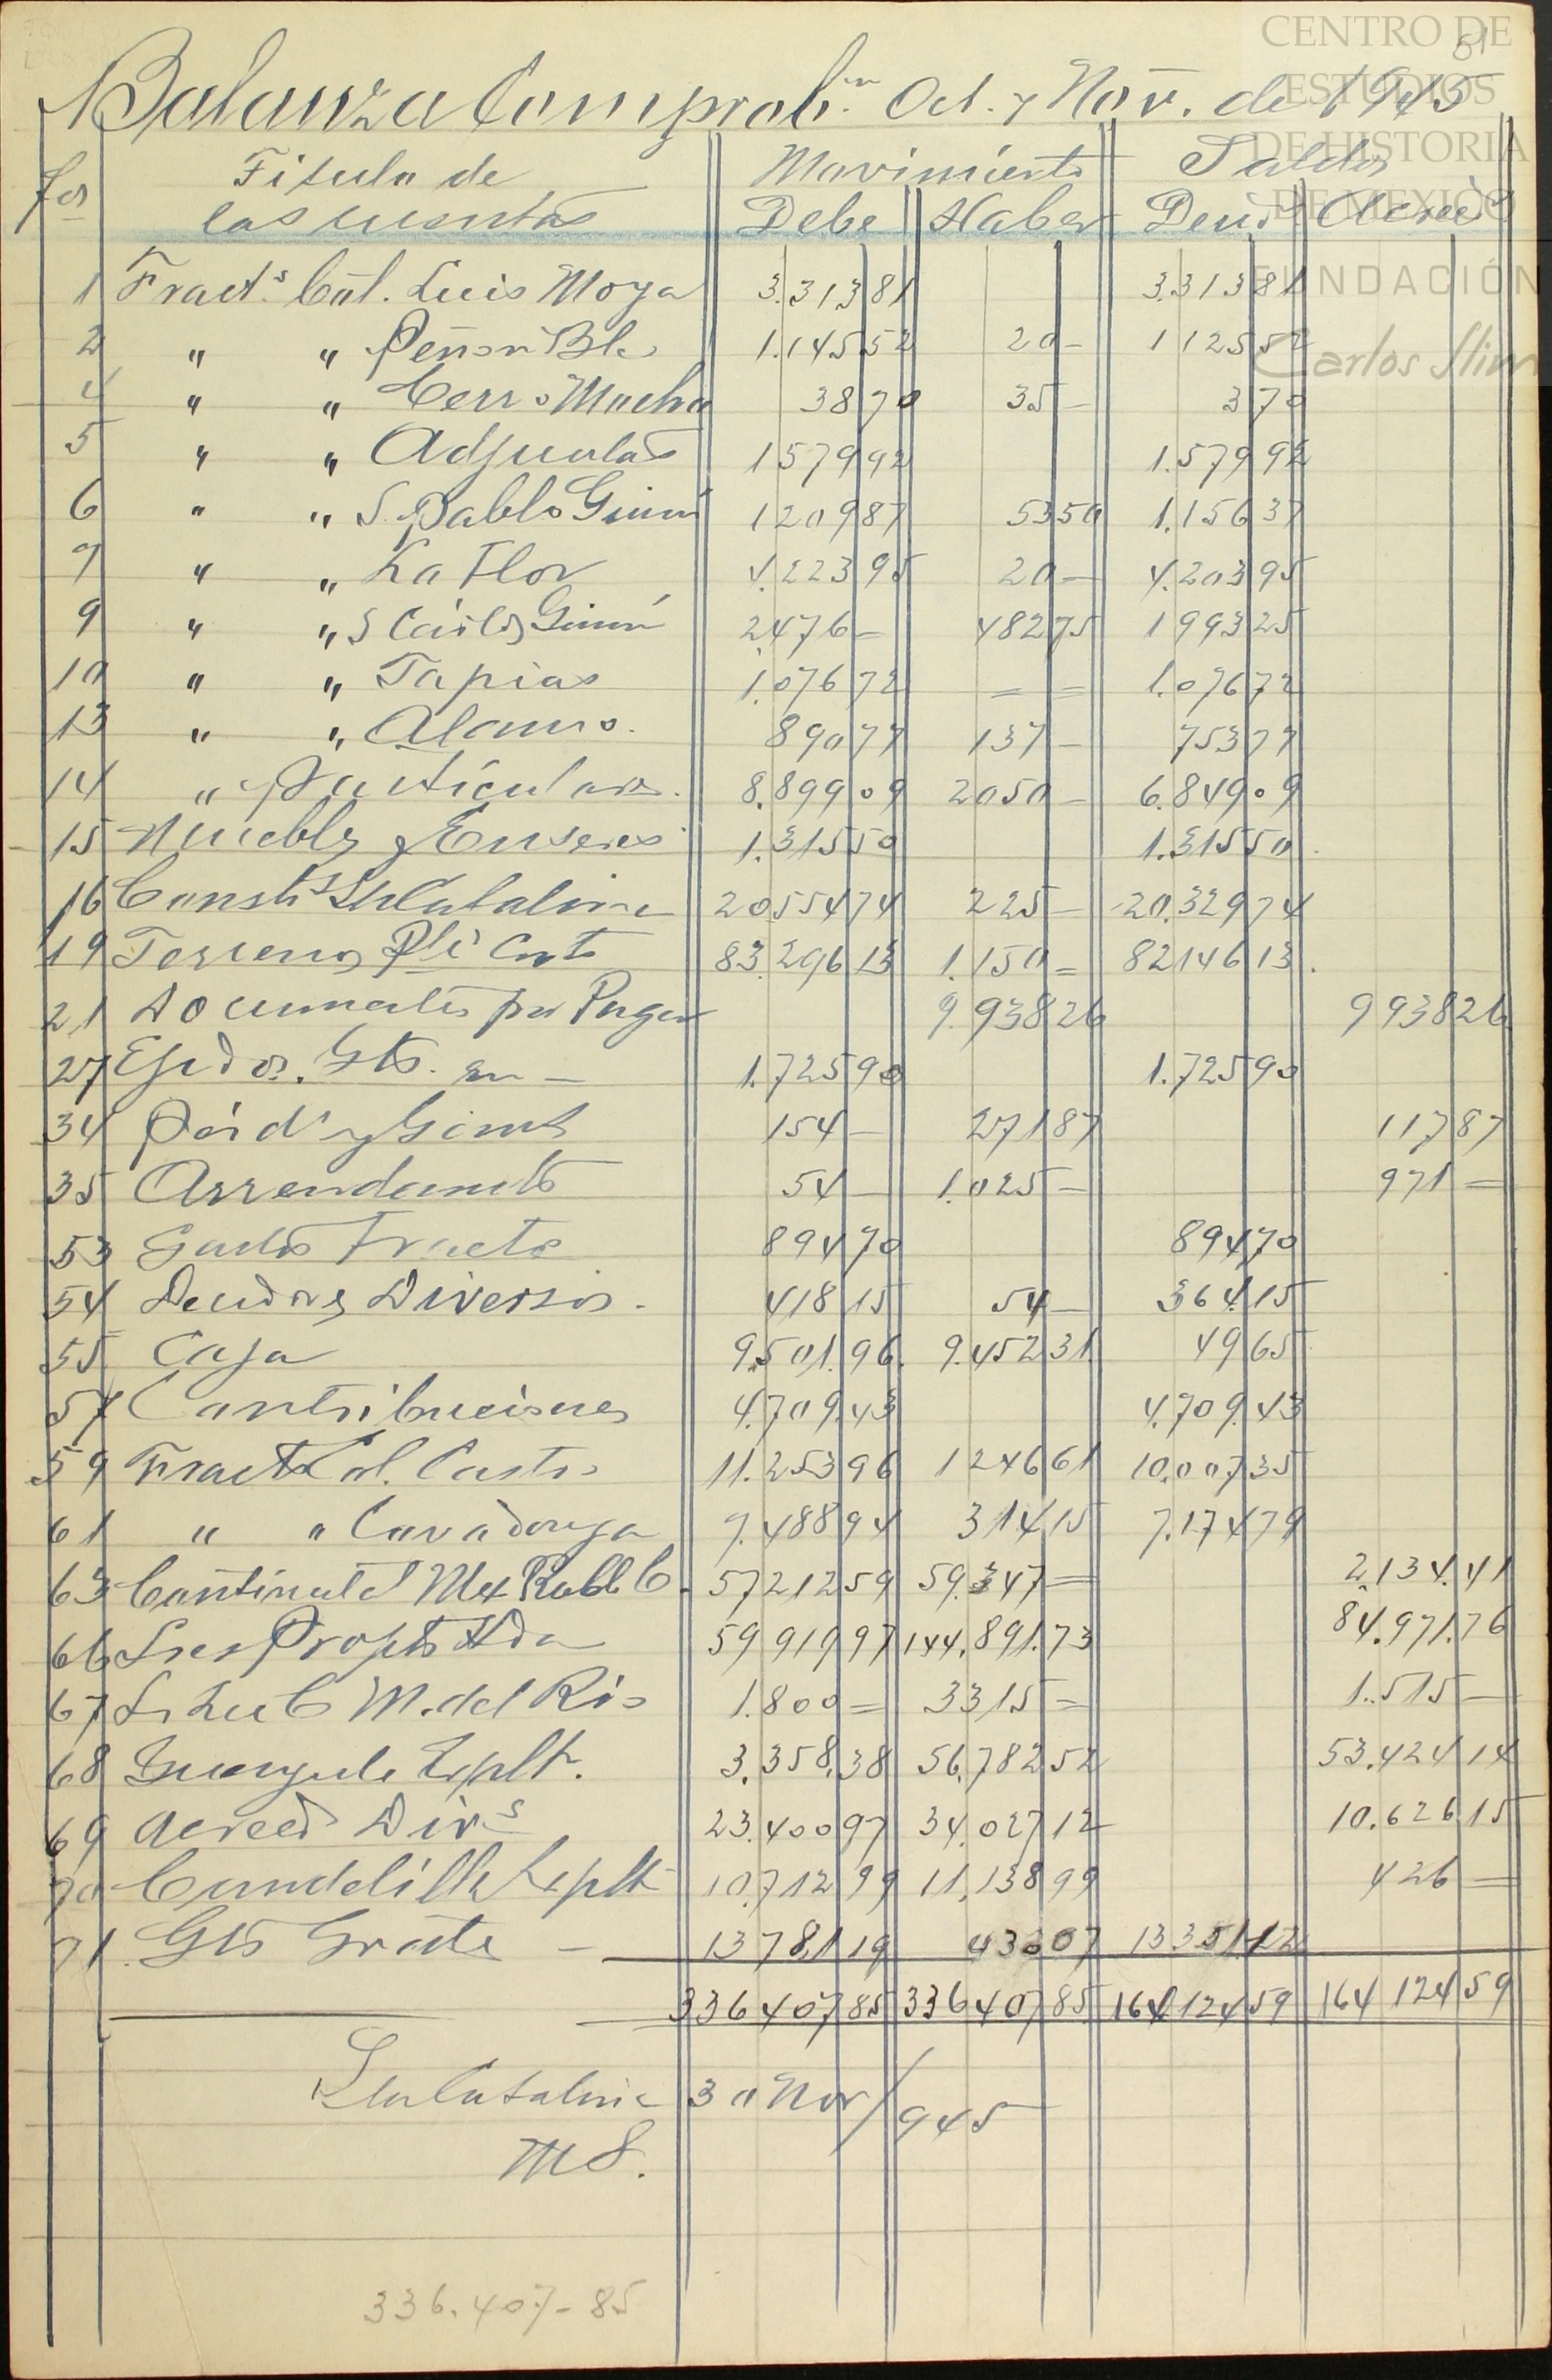 CENTRO DE
ESTUDIOS
DE HISTORIA
DE MEXICO
FUNDACIÓN
Carlos Slim
81
Balanza Comprobn. Oct. y Nov. de 1945
fos Titulo de Movimiento Saldos
las cuentas Debe Haber Deud. Acreed.
1 Fracts. Col. Luis Moya 3.313 81 3.313 81
2 " " Peñon Blco 1.145 52 20 — 1125 52
4 " " Cerro Mocho 38 70 35 — 3 70
5 " " Adjuntas 1579 92 1.579 92
6 " " S. Pablo Gimn 1209 87 53 50 1.156 37
7 " " La Flor 4.223 95 20 — 4.203 95
9 " " S Cárlos Gimn 2.476 — 482 75 1993 25
10 " " Tapias 1.076 72 = = 1.076 72
13 " " Alamo. 890 77 137 — 753 77
14 " Particulares. 8.899 09 2050 — 6.849 09
15 Muebles y Enseres 1.315 50 1.315 50
16 Consts Sta Catalina 20554 74 225 — 20.329 74
19 Terrenos 83.296 13 1.150 = 82146 13
21 Documentos por Pagar 9.938 26 9938 26
27 Ejidos. Gts. en — 1.725 90 1.725 90
34 Pérds y Gancs 154 — 271 87 117 87
35 Arrendamto 54 — 1.025 — 971 —
53 Gastos Tracto 894 70 894 70
54 Deudores Diversos. 418 15 54 — 364 15
55 Caja 9.501.96. 9.452 31. 49 65
57 Contribuciones 4.709.43 4.709.43
59 Fracto Col. Castro 11.253 96 1246 61 10.007 35
61 " " Covadonga 7.488 94 314 15 7.174 79
63 Continental Mex Rubb C. 57212 59 59.347 = 2.134.41
66 Sres Propts Hda 59919 97 144.891.73 84.971.76
67 M. del Rio 1.800 = 3315 = 1.515 —
68 Guayule Explt. 3.358.38 56.782 52 53.424 14
69 Acreed Divs 23.400 97 34.027 12 10.626 15
70 Candelilla Explt 10.712 99 11.138 99 426 =
71. Gts Grales — 13781 19 430 07 13351.12
336407 85 336407 85 164124 59 164124 59
Sta Catalina 30 Nov/945
MS.
336.407-85